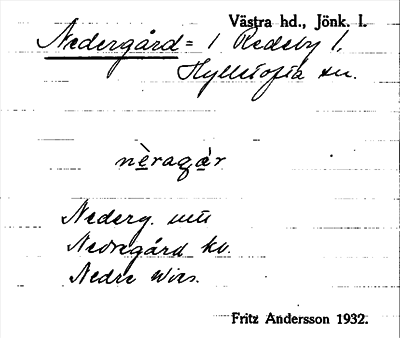 Västra hd., Jönk. l.
Nedergård = 1 Redeby 1.
Hylletofta sn.
nèragár
Nederg. mtl
Nedregård kv.
Nedre Wies.
Fritz Andersson 1932.